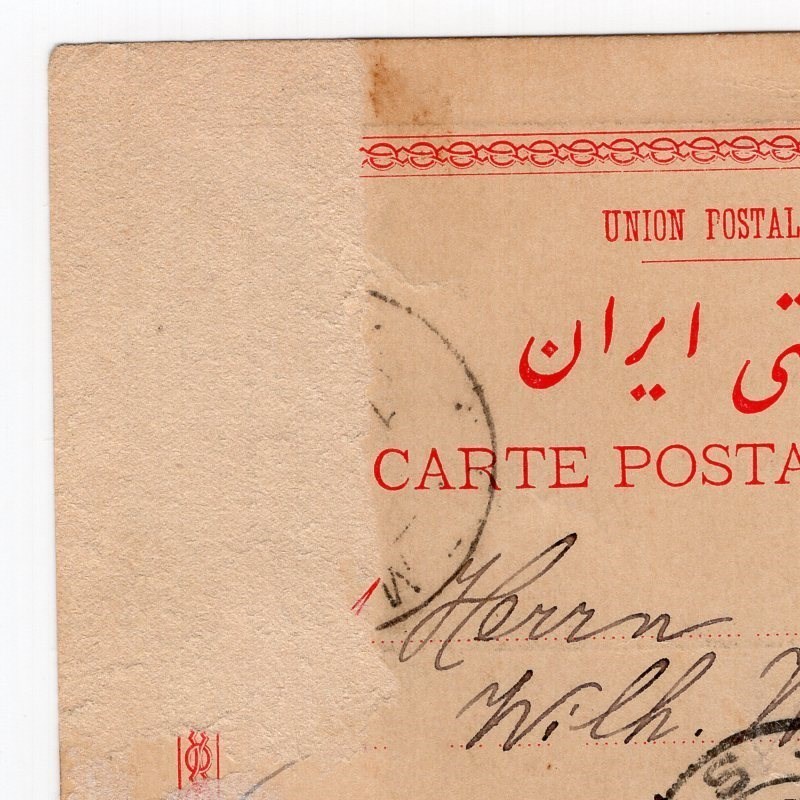 UNION POSTAL
ایران
CARTE POSTA
M
Herrn
Wilh.
S